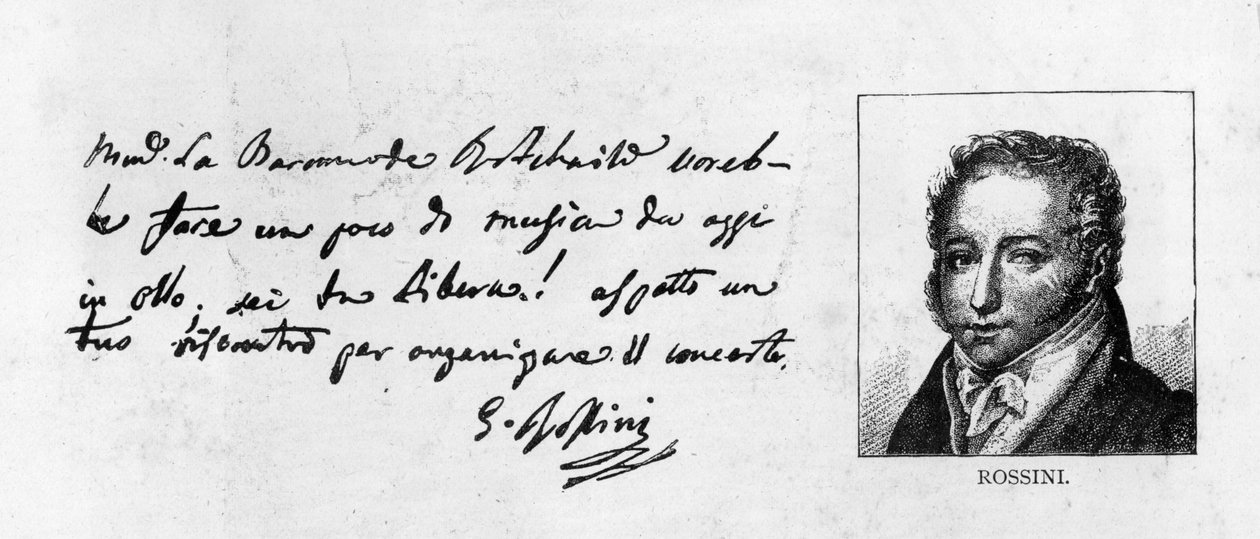 Mmd. La Baronne de Rotchaild voreb-
be fare un poco di musica da oggi
in otto; sei tu libera.! aspetto un
tuo riscontro per organizzare il concerto.
G. Rossini
ROSSINI.